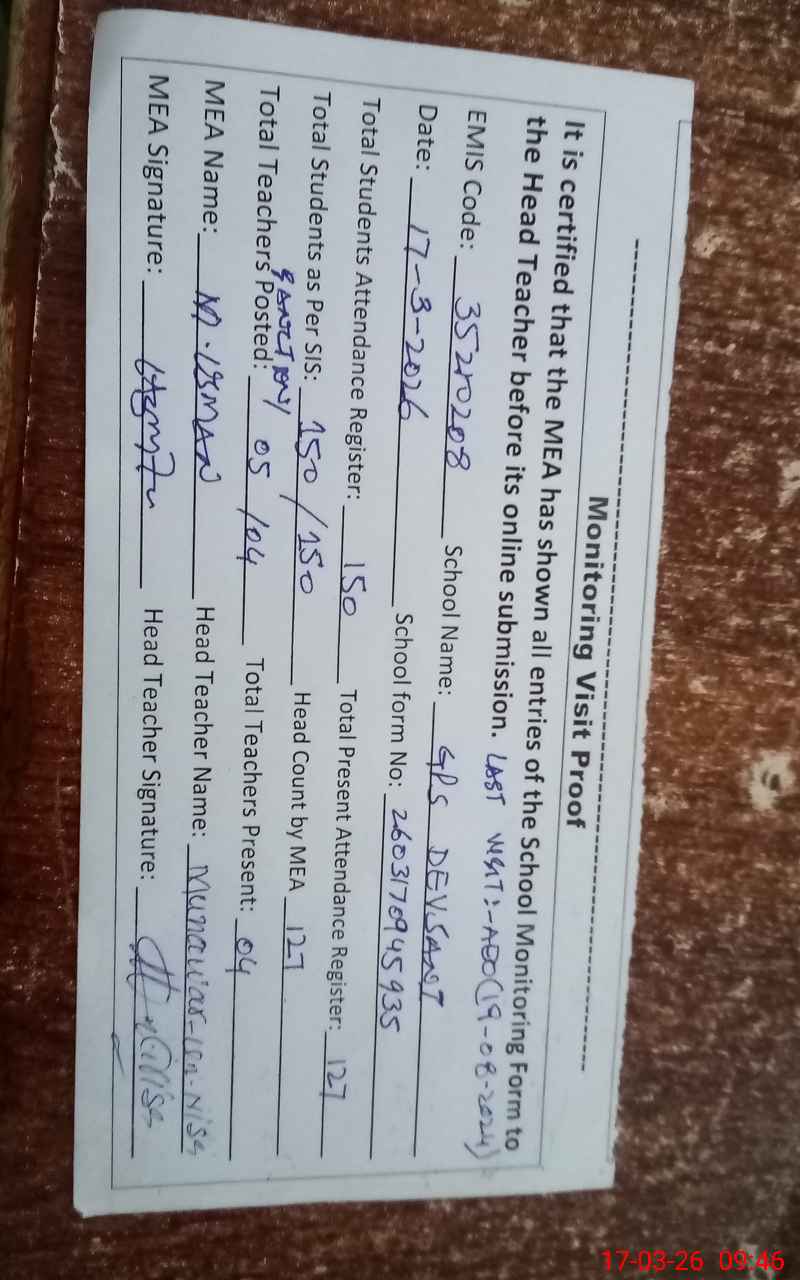 Monitoring Visit Proof
It is certified that the MEA has shown all entries of the School Monitoring Form to
the Head Teacher before its online submission. LAST VISIT:-AEO(19-08-2024)
EMIS Code: 35210208 School Name: GPS DEVSANT
Date: 17-3-2026 School form No: 260317094S935
Total Students Attendance Register: 150 Total Present Attendance Register: 127
Total Students as Per SIS: 150/150 Head Count by MEA 127
SANCTION
Total Teachers Posted: 05/04 Total Teachers Present: 04
MEA Name: M.USMAN Head Teacher Name: Munawar-un-Nisa
MEA Signature: Head Teacher Signature:
17-03-26 09:46